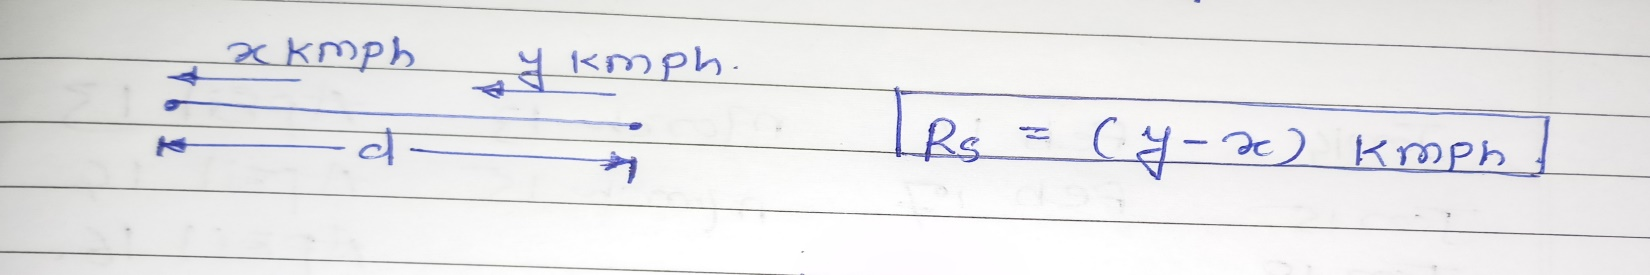 x kmph y kmph.
d
Rs = (y-x) kmph